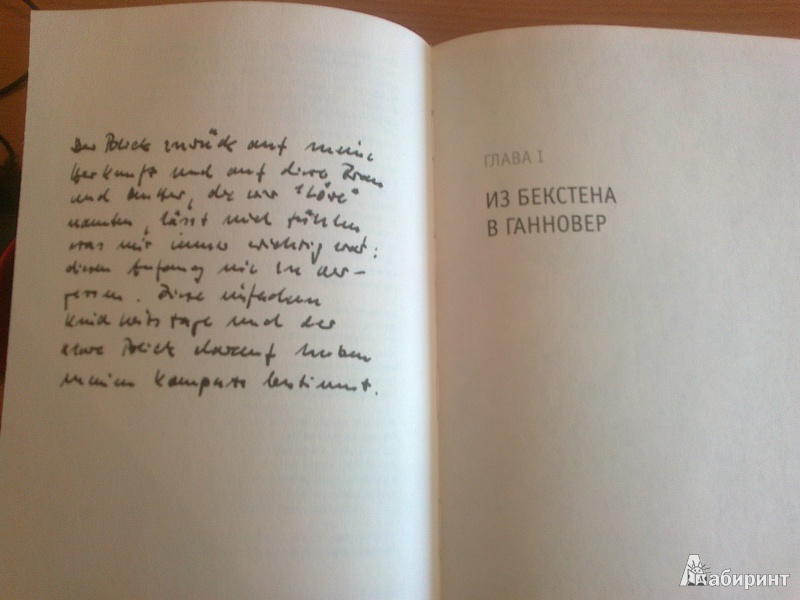 Der Blick zurück auf meine
Herkunft und auf diese Frau
und Mutter, die wir "Löse"
nannten, lässt mich fühlen
was mir immer wichtig war:
diesen Anfang nie zu ver-
gessen. Diese einfachen
Kindheitstage und der
klare Blick darauf haben
meinen Kompass bestimmt.
ГЛАВА I
ИЗ БЕКСТЕНА
В ГАННОВЕР
Лабиринт